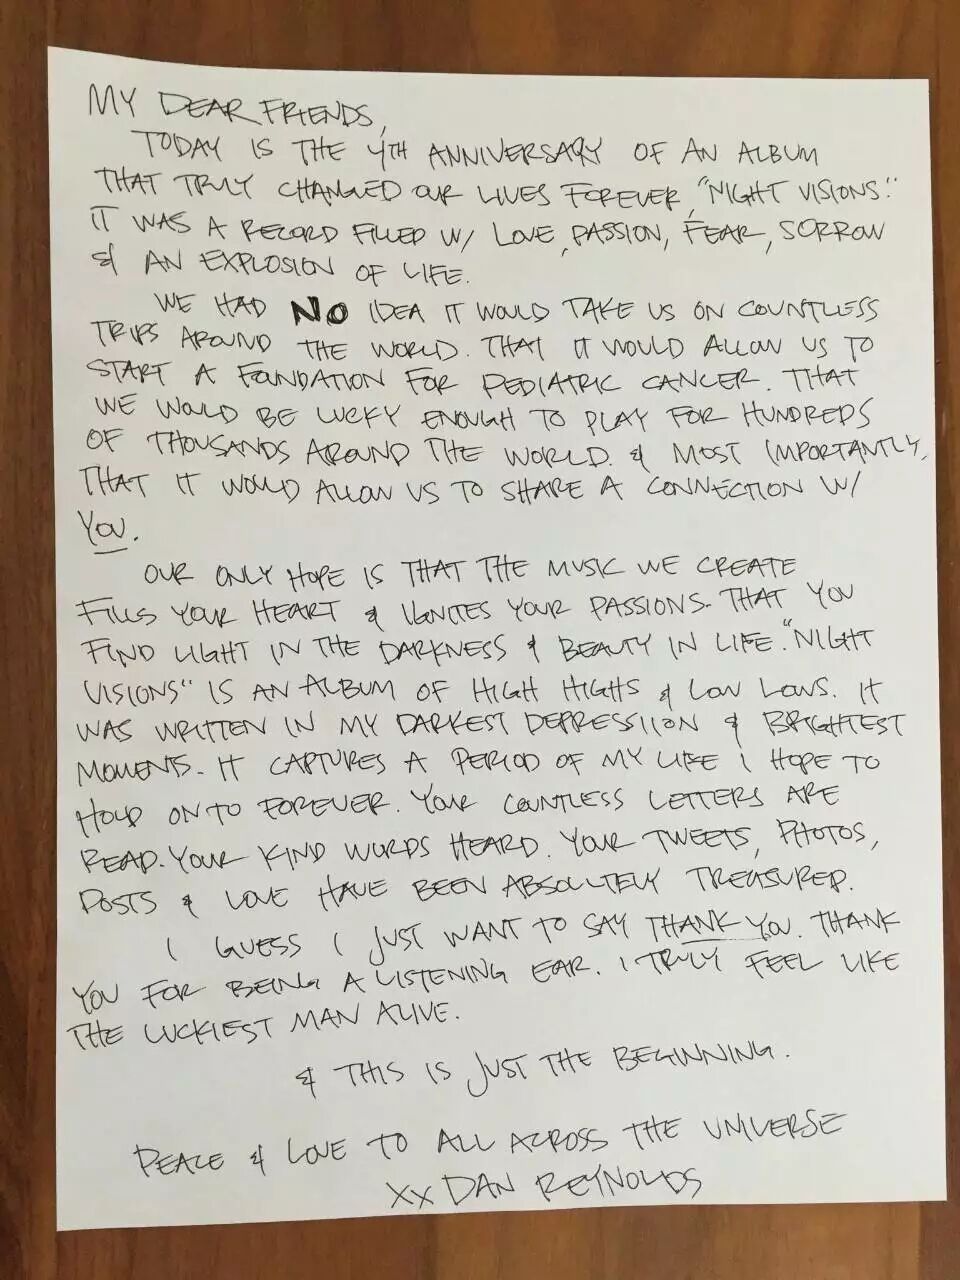 MY DEAR FRIENDS,
TODAY IS THE 4TH ANNIVERSARY OF AN ALBUM
THAT TRULY CHANGED OUR LIVES FOREVER, "NIGHT VISIONS."
IT WAS A RECORD FILLED W/ LOVE, PASSION, FEAR, SORROW
& AN EXPLOSION OF LIFE.
WE HAD NO IDEA IT WOULD TAKE US ON COUNTLESS
TRIPS AROUND THE WORLD. THAT IT WOULD ALLOW US TO
START A FOUNDATION FOR PEDIATRIC CANCER. THAT
WE WOULD BE LUCKY ENOUGH TO PLAY FOR HUNDREDS
OF THOUSANDS AROUND THE WORLD. & MOST IMPORTANTLY,
THAT IT WOULD ALLOW US TO SHARE A CONNECTION W/
YOU.
OUR ONLY HOPE IS THAT THE MUSIC WE CREATE
FILLS YOUR HEART & IGNITES YOUR PASSIONS. THAT YOU
FIND LIGHT IN THE DARKNESS & BEAUTY IN LIFE. "NIGHT
VISIONS" IS AN ALBUM OF HIGH HIGHS & LOW LOWS. IT
WAS WRITTEN IN MY DARKEST DEPRESSIION & BRIGHTEST
MOMENTS. IT CAPTURES A PERIOD OF MY LIFE I HOPE TO
HOLD ON TO FOREVER. YOUR COUNTLESS LETTERS ARE
READ. YOUR KIND WORDS HEARD. YOUR TWEETS, PHOTOS,
POSTS & LOVE HAVE BEEN ABSOLUTELY TREASURED.
I GUESS I JUST WANT TO SAY THANK YOU. THANK
YOU FOR BEING A LISTENING EAR. I TRULY FEEL LIKE
THE LUCKIEST MAN ALIVE.
& THIS IS JUST THE BEGINNING.
PEACE & LOVE TO ALL ACROSS THE UNIVERSE
XX DAN REYNOLDS